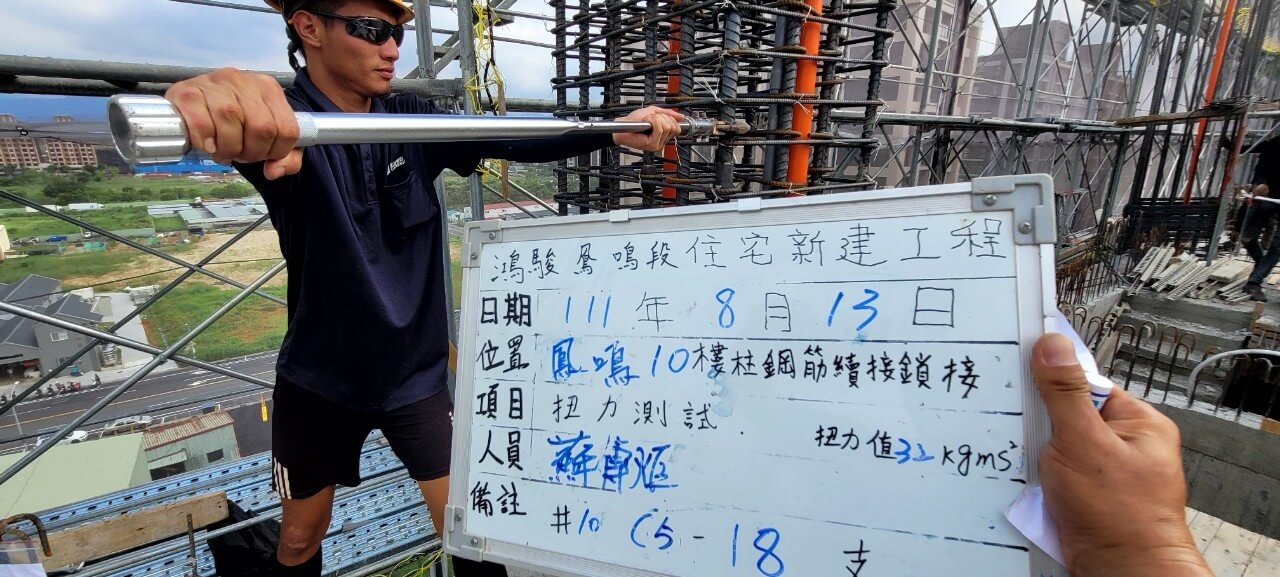 鴻駿鳳鳴段住宅新建工程
日期 111年8月13日
位置 鳳鳴10樓柱鋼筋續接鎖接
項目 扭力測試 扭力值32kgms²
人員 蘇
備註 #10 C5-18支